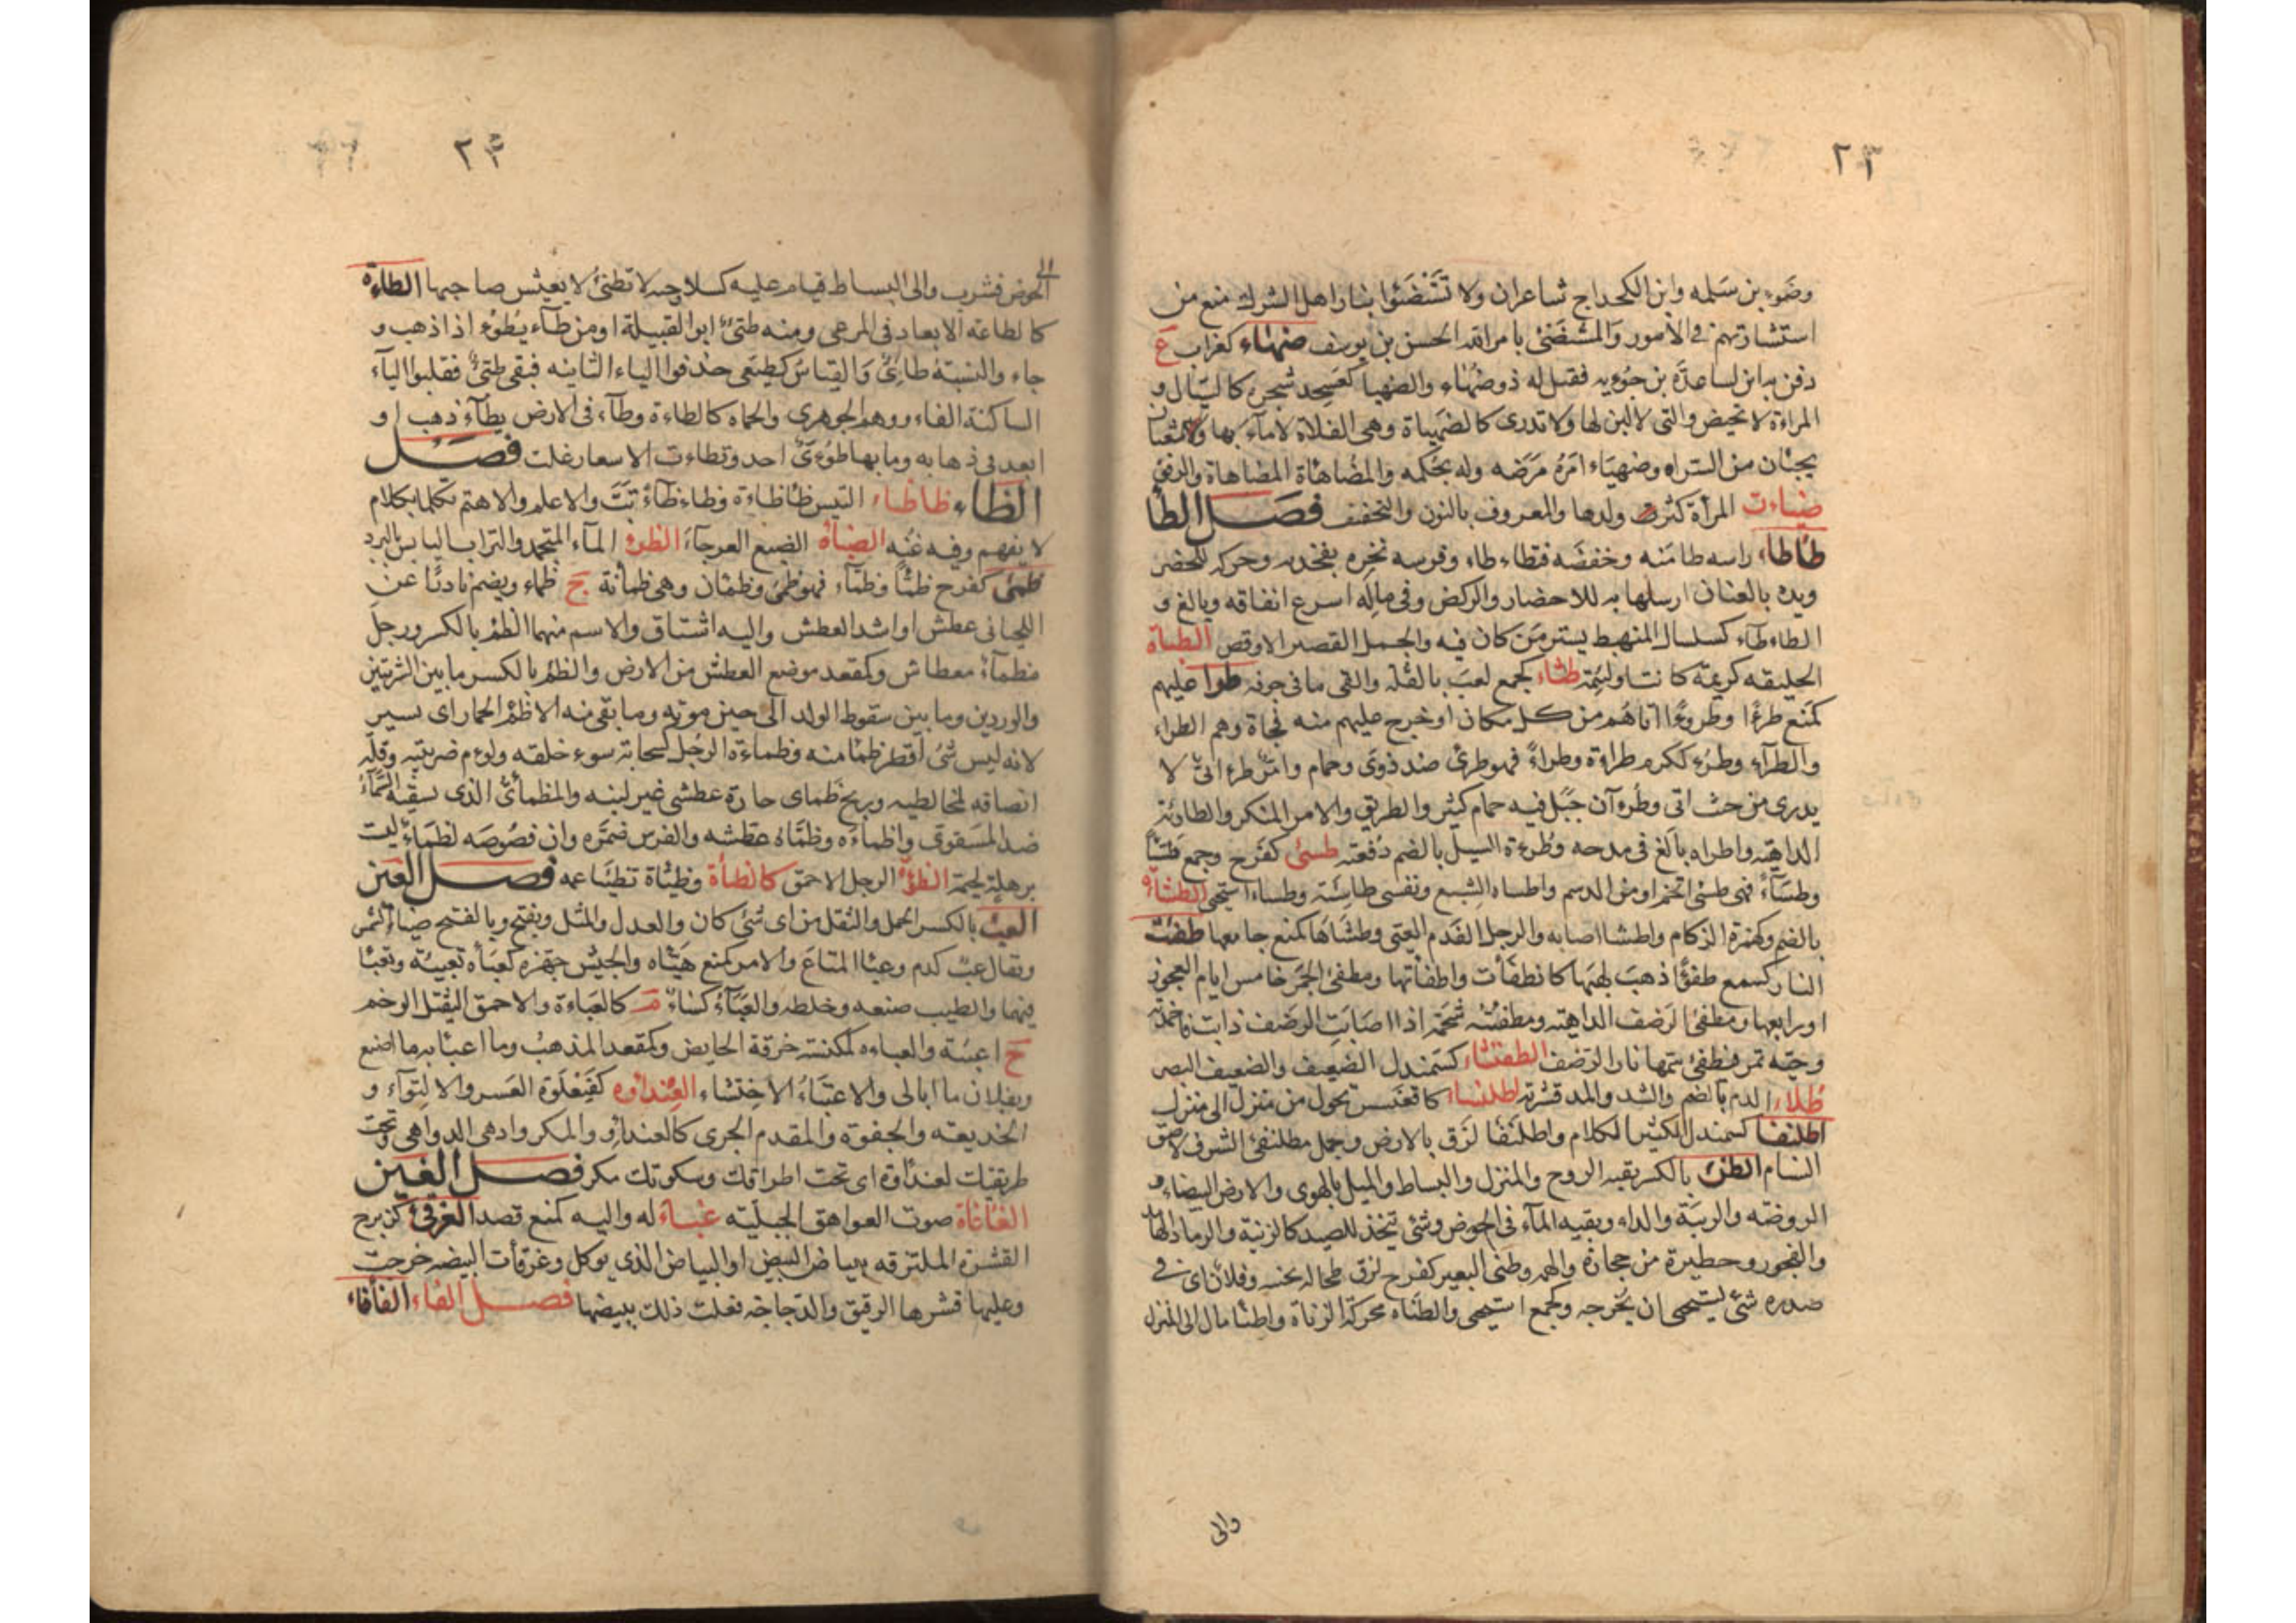 ٢٣
وضَوء بن سَلمه وابن الكحداج شاعران ولا تَسْتَضَئوا بنار اهل الشرك منع من
استشارتهم في الأمور والمستضئ بامرالله الحسن بن يوسف ضهاء كغراب ع
دفن به ابن لساعدة بن جؤيه فقيل له ذو ضهاء والضهيا كعسجد شجرة كالسيال و
المراءة لا تحيض والتى لا لبن لها ولا ثدى كالضهياة وهى الفلاة لا ماء بها
بجبنان من السراه وضهياء امره مرضه وله يحكمه والمضاهاة المضاهاة والرفق
ضناءت المرأة كثر ولدها والمعروف بالنون والتخفيف فصل الطا
طاطاء راسه طامنه وخفضه فتطاء طاء وفرسه نخزه بفخذيه وحركه للحضر
ويده بالعنان ارسلها به للاحضار والركض وفى ماله اسرع انفاقه وبالغ و
الطاءطاء كسلسال المنهبط يستر من كان فيه والجمل القصير الاوقص الطباة
الخليقه كريمة كانت او لئيمة طثاء كجمع لعب بالقلة والقى ما فى جوفه طرا عليهم
كمنع طرءا وطروءا اتاهم من كل مكان او خرج عليهم منه فجاة وهم الطراء
والطرآء وطرء ككرم طراوة وطراء فهو طرئ ضد ذوى وحمام وامر طرءانى لا
يدرى من حيث اتى وطرءآن جبل فيه حمام كثير والطريق والامر المنكر والطارئة
الداهيه واطراه بالغ فى مدحه وطرءة السيل بالضم دفعته طسئ كفرح وجمع طسئا
وطساء فهو طسئ اتخم او من الدسم واطساه الشبع ونفسى طاسئة وطساء استحيى الطشاءة
بالضم وكهمزة الزكام واطشا اصابه والرجل الفدم العتى وطشاها كمنع جامعها طفئت
النار كسمع طفؤا ذهب لهبها كانطفأت واطفأتها ومطفئ الجمر خامس ايام العجوز
او رابعها ومطفئ الرضف الداهيه ومطفئته شحمة اذا اصابت الرضف ذابت فاخمدته
وحيه تمر فيطفئ سمها نار الرضف الطفنشاء كسمندل الضعيف والضعيف البصر
طلاء الدم بالضم والشد والمد قشرته اطلنساء كاقعنسس تحول من منزل الى منزل
اطلنفا كسمندل الكثير الكلام واطلنفا لزق بالارض وجمل مطلنفئ الشرف لاصق
السنام الطن بالكسر بقيه الروح والمنزل والبساط والميل بالهوى والارض البيضاء و
الروضه والريبة والداء وبقيه المآء فى الحوض وشئ يتخذ للصيد كالزنية والرماد الهامد
والفجور وحظيرة من حجارة والهم وطنئ البعير كفرح لزق طحاله بجنبه وفلان اى فى
صدره شئ يستحيى ان يخرجه وكجمع استحيى والطناه محركة الزناة واطنا مال الى المنزل
والى
٢٣
الى
الحوض فشرب والى البساط فنام عليه كسلا وحيه لا تطنئ لا يعيش صاحبها الطاءة
كالطاعة الابعاد فى المرعى ومنه طيئ ابو القبيلة او من طاء يطوء اذا ذهب و
جاء والنسبة طائى والقياس كطيعى حذفوا الياء الثانيه فبقى طيئ فقلبوا اليآء
الساكنة الفاء ووهم الجوهرى والحماه كالطاءة وطآء فى الارض يطآء ذهب او
ابعد فى ذهابه وما بها طوءى احد وتطاءت الاسعار غلت فصل
الظاء ظاظاء التيس ظاظاءة وظاءظآء نب والاعلم والاهتم تكلما بكلام
لا يفهم وفيه غنه الضباة الضبع العرجاء الظرء المآء المتجمد والتراب اليابس بالبرد
ظمئ كفرح ظمئا وظمآء فهو ظمئ وظمئان وهى ظمأنة ج ظماء ويضم نادرا عن
اللحيانى عطش او اشد العطش واليه اشتاق والاسم منهما الظمء بالكسر ورجل
مظماء معطاش وكمقعد موضع العطش من الارض والظمء بالكسر ما بين الشربتين
والوردين وما بين سقوط الولد الى حين موته وما بقى منه الا ظمء الحمار اى يسير
لانه ليس شئ اقصر ظمئا منه وظماءة الرجل كسحابة سوء خلقه ولوءم ضريبته وقلة
انصافه لمخالطيه وريح ظماى حارة عطشى غير لينه والمظمأئ الذى تسقيه السماء
ضد المسقوى واظماءه وظماه عطشه والفرس ضمره وان فصوصه لظماء ليست
برهلة لحيمة الظوءة الرجل الاحمق كالظأة وظيئاة تظيئا عمه فصل العين
العبء بالكسر الحمل والثقل من اى شئ كان والعدل والمثل ويفتح وبالفتح ضياء الشمس
ويقال عب كدم وعبئا المتاع والامر كمنع هيئاه والجيش جهزه كعبأه تعبيئة وتعبئا
فيهما والطيب صنعه وخلطه والعبآء كساء م كالعباءة والاحمق الثقيل الوخم
ج اعبئة والعباءه كمكنسة خرقة الحايض وكمقعد المذهب وما اعبئا به ما اصنع
وبفلان ما ابالى والاعتباء الاختشاء العنداوه كفنعلوة العسر والالتوآء و
الخديعه والجفوة والمقدم الجرى كالعنداو والمكر وادهى الدواهى وتحت
طريقتك لعنداوة اى تحت اطراقك وسكوتك مكر فصل الغين
الغاغاة صوت العواهق الجبليه غباء له واليه كمنع قصد الغرقئ كزبرج
القشرة الملتزقه ببياض البيض او البياض الذى يوكل وغرقأت البيضه خرجت
وعليها قشرها الرقيق والدجاجة فعلت ذلك ببيضها فصل الفاء الفأفاء